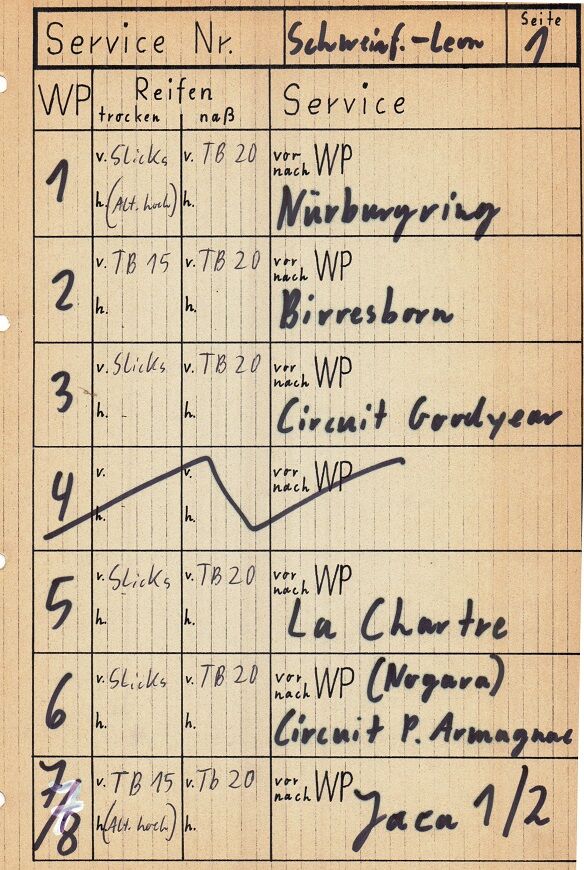 Service Nr. Schweinf.-Leon Seite 1
WP Reifen Service
trocken naß
1 v. Slicks v. TB 20 vor nach WP
h. (Alt. hoch) h. Nürburgring
2 v. TB 15 v. TB 20 vor nach WP
h. h. Birresborn
3 v. Slicks v. TB 20 vor nach WP
h. h. Circuit Goodyear
4 v. v. vor nach WP
h. h.
5 v. Slicks v. TB 20 vor nach WP
h. h. La Chartre
6 v. Slicks v. TB 20 vor nach WP (Nogara)
h. h. Circuit P. Armagnac
7/8 v. TB 15 v. Tb 20 vor nach WP
h. (Alt. hoch) h. Jaca 1/2